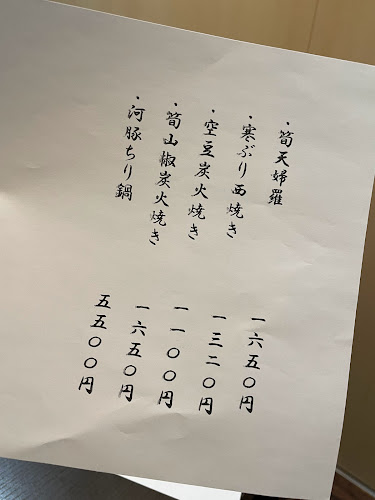 ・筍天婦羅 一六五〇円
・寒ぶり西焼き 一三二〇円
・空豆炭火焼き 一一〇〇円
・筍山椒炭火焼き 一六五〇円
・河豚ちり鍋 五五〇〇円